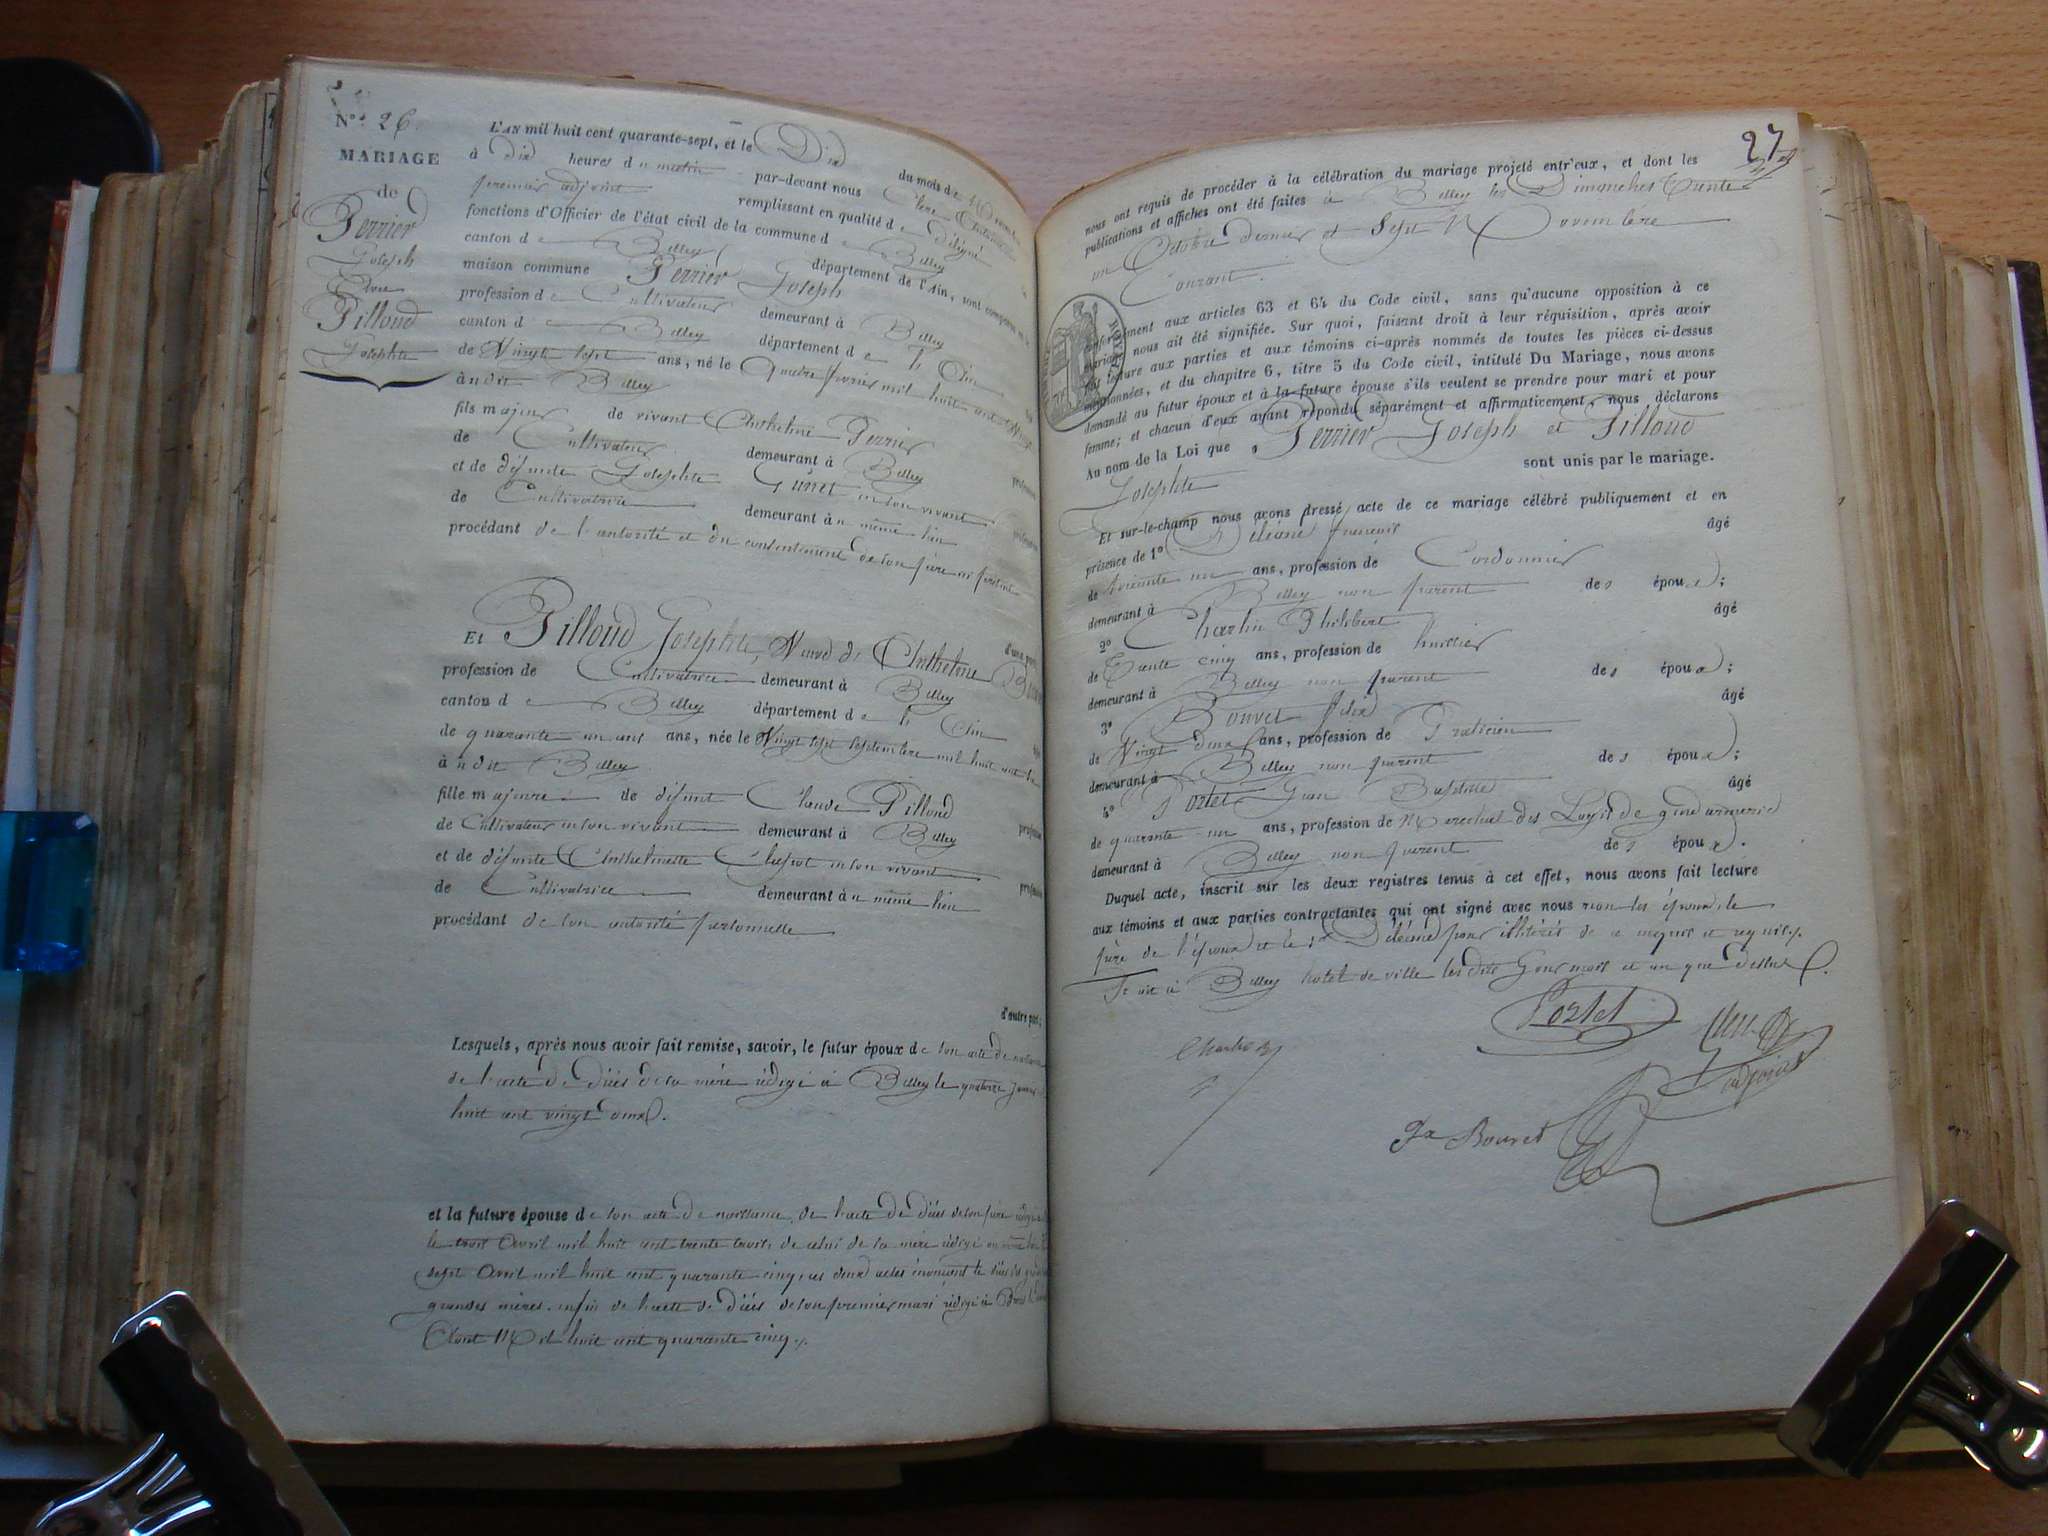 N° 26.
MARIAGE
de
Perrier
Joseph
Et
Pilloud
Josephte
L'AN mil huit cent quarante-sept, et le Dix du mois de Novembre
à Dix heures du matin par-devant nous
premier adjoint remplissant en qualité de délégué
fonctions d'Officier de l'état civil de la commune de Belley
canton de Belley département de l'Ain, sont comparus
maison commune Perrier Joseph
profession de Cultivateur demeurant à Belley
canton de Belley département de l'Ain
de Vingt sept ans, né le Quatre février mil huit cent vingt
à udit Belley
fils majeur de vivant Anthelme Perrier
de Cultivateur demeurant à Belley
et de défunte Josephte en son vivant
de Cultivatrice demeurant à u même lieu
procédant de l'autorité et du consentement de son père ici présent
d'une part;
Et Pilloud Josephte, Veuve de Anthelme
profession de Cultivatrice demeurant à Belley
canton de Belley département de l'Ain
de quarante un ans ans, née le Vingt sept septembre mil huit cent six
à udit Belley
fille majeure de défunt Claude Pilloud
de Cultivateur en son vivant demeurant à Belley
et de défunte Anthelmette en son vivant
de Cultivatrice demeurant à u même lieu
procédant de son autorité personnelle
d'autre part;
Lesquels, après nous avoir fait remise, savoir, le futur époux de son acte de naissance
de l'acte de décès de sa mère rédigé à Belley le quatorze
huit cent vingt deux.
et la future épouse de son acte de naissance, de l'acte de décès de son père rédigé
le trois Avril mil huit cent trente trois, de celui de sa mère rédigé au même lieu
sept Avril mil huit cent quarante cinq, ces deux actes énonçant le décès des
grandes mères. enfin de l'acte de décès de son premier mari rédigé à
Août Mil huit cent quarante cinq.
27
nous ont requis de procéder à la célébration du mariage projeté entr'eux, et dont les
publications et affiches ont été faites à Belley les Dimanches trente
un Octobre dernier et Sept Novembre
Courant.
conformément aux articles 63 et 64 du Code civil, sans qu'aucune opposition à ce
mariage nous ait été signifiée. Sur quoi, faisant droit à leur réquisition, après avoir
fait lecture aux parties et aux témoins ci-après nommés de toutes les pièces ci-dessus
mentionnées, et du chapitre 6, titre 5 du Code civil, intitulé Du Mariage, nous avons
demandé au futur époux et à la future épouse s'ils veulent se prendre pour mari et pour
femme; et chacun d'eux ayant répondu séparément et affirmativement, nous déclarons
Au nom de la Loi que Perrier Joseph et Pilloud
Josephte sont unis par le mariage.
Et sur-le-champ nous avons dressé acte de ce mariage célébré publiquement et en
présence de 1° Déliane françois âgé
de soixante un ans, profession de Cordonnier
demeurant à Belley non parent des époux;
2° Charlin Philibert âgé
de Trente cinq ans, profession de huissier
demeurant à Belley non parent des époux;
3° Bouvet félix âgé
de Vingt deux ans, profession de Praticien
demeurant à Belley non parent des époux;
4° Portet Jean Baptiste âgé
de quarante un ans, profession de Marechal des Logis de gendarmerie
demeurant à Belley non parent des époux.
Duquel acte, inscrit sur les deux registres tenus à cet effet, nous avons fait lecture
aux témoins et aux parties contractantes qui ont signé avec nous non les époux, le
père de l'époux et le 1er témoin pour illitérés de ce enquis et requis.
Fait à Belley hotel de ville les dits jour mois et an que dessus.
Portet
Charlin
adjoint
fx Bouvet